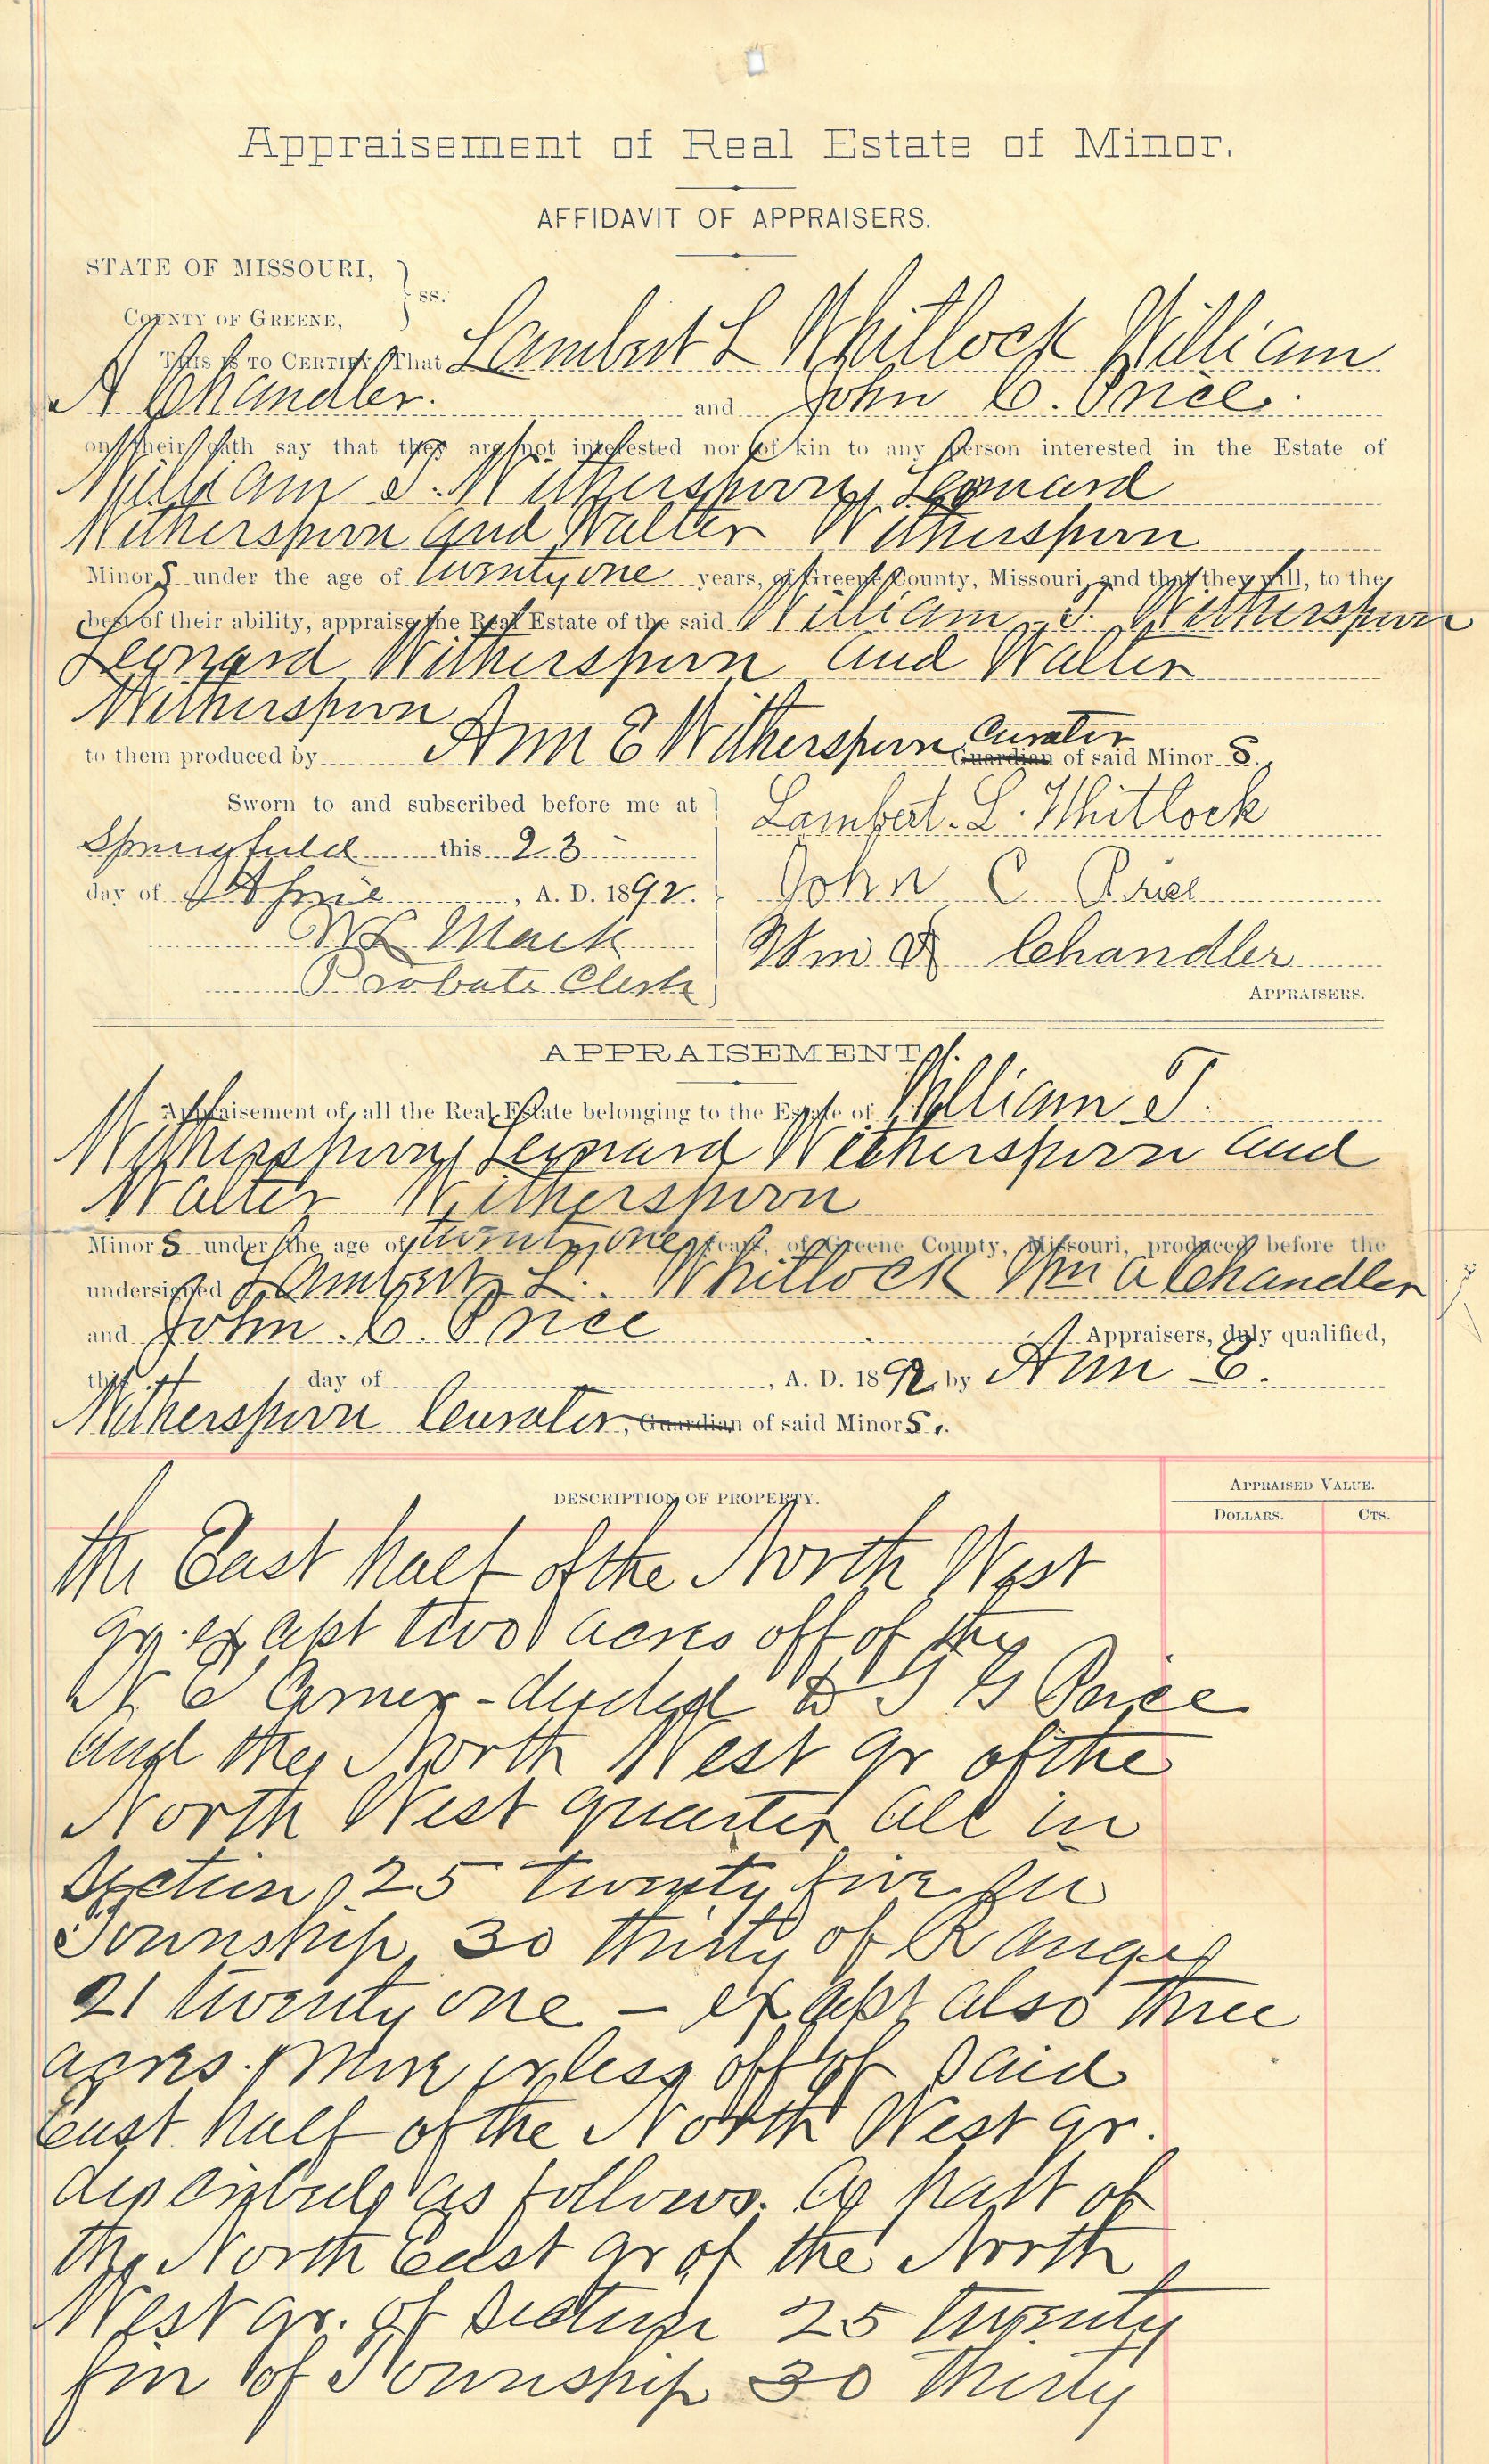 Appraisement of Real Estate of Minor.
AFFIDAVIT OF APPRAISERS.
STATE OF MISSOURI,
COUNTY OF GREENE, } ss.
THIS IS TO CERTIFY, That Lambert L Whitlock William
A Chandler. and John C. Price.
on their oath say that they are not interested nor of kin to any person interested in the Estate of
William T. Witherspoon, Leonard
Witherspoon and Walter Witherspoon
Minors under the age of twenty one years, of Greene County, Missouri, and that they will, to the
best of their ability, appraise the Real Estate of the said William T. Witherspoon
Leonard Witherspoon and Walter
Witherspoon
to them produced by Ann E Witherspoon Curator Guardian of said Minor s.
Sworn to and subscribed before me at
Springfield this 23
day of April, A. D. 1892.
W L Mack
Probate Clerk
Lambert. L. Whitlock
John C Price
Wm A Chandler
APPRAISERS.
APPRAISEMENT.
Appraisement of all the Real Estate belonging to the Estate of William T.
Witherspoon, Leonard Witherspoon and
Walter Witherspoon
Minors under the age of twenty one years, of Greene County, Missouri, produced before the
undersigned Lambert L. Whitlock Wm A Chandler
and John. C. Price Appraisers, duly qualified,
this day of , A. D. 1892 by Ann E.
Witherspoon Curator, Guardian of said Minors.
DESCRIPTION OF PROPERTY.
APPRAISED VALUE.
DOLLARS. CTS.
the East half of the North West
qr. except two acres off of the
N E Corner - deeded to T G Price
and the North West qr of the
North West quarter all in
Section 25 twenty five in
Township 30 thirty of Range
21 twenty one - except also three
acres. more or less off of said
East half of the North West qr.
described as follows. A part of
the North East qr of the North
West qr. of Section 25 twenty
five of Township 30 thirty